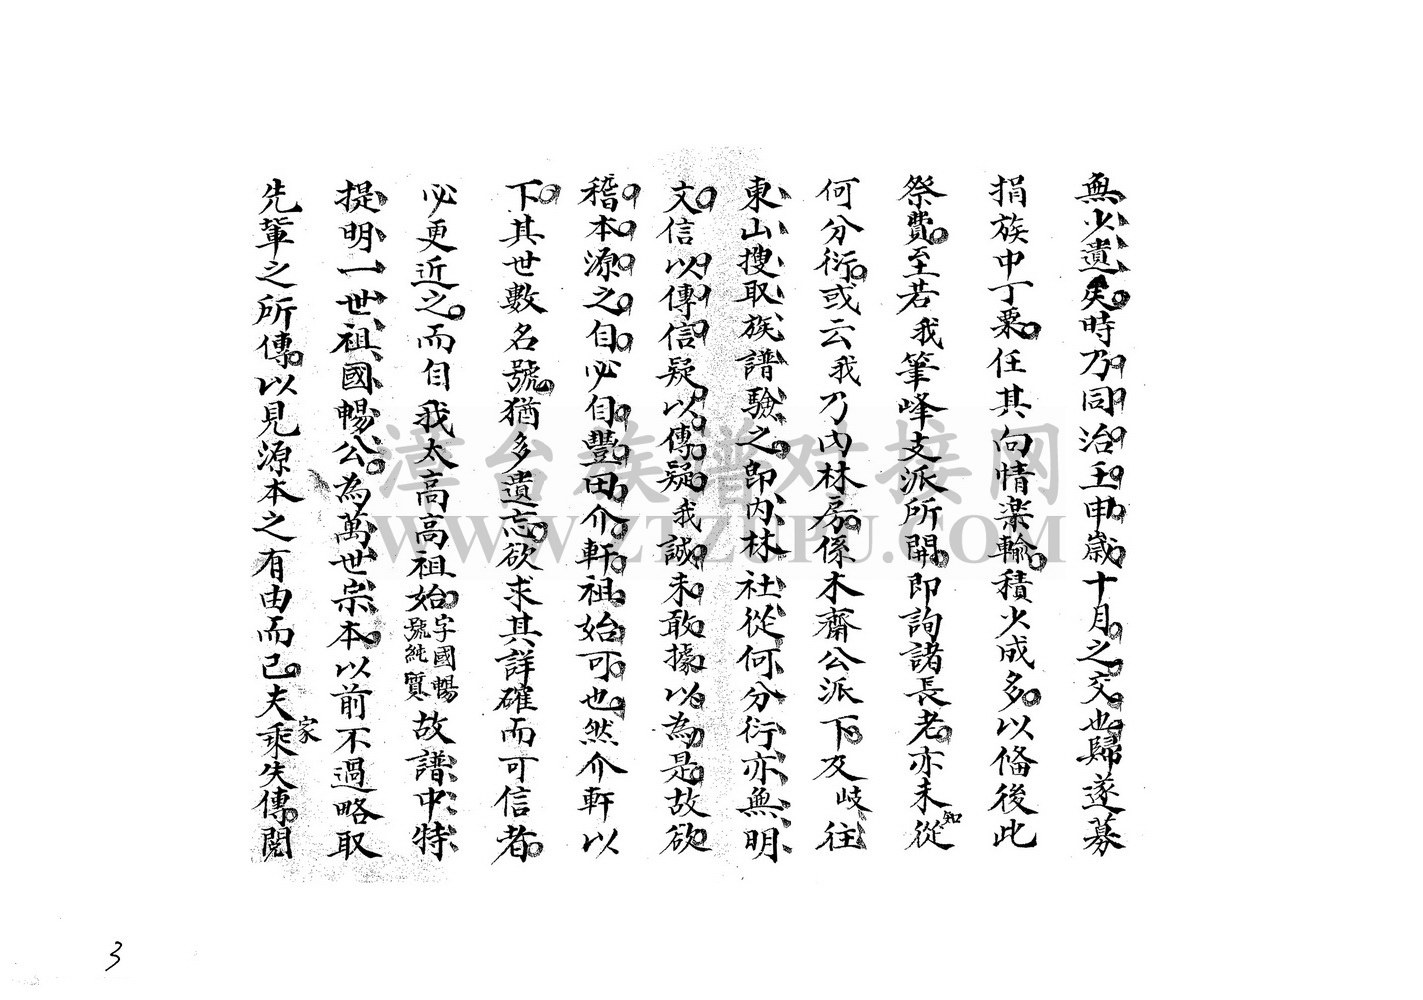 無少遺矣時乃同治壬申歲十月之交也歸遂募
捐族中丁粟任其向情楽輸積少成多以俻後此
祭費至若我筆峰支派所開即詢諸長老亦未知從
何分衍或云我乃内林房係木齋公派下及岐往
東山搜取族譜驗之即内林社從何分衍亦無明
文信以傳信疑以傳疑我誠未敢據以為是故欲
稽本源之自必自豐田介軒祖始可也然介軒以
下其世數名號猶多遺忘欲求其詳確而可信者
必更近之而自我太高高祖始字國暢號純質故譜中特
提明一世祖國暢公為萬世宗本以前不過略取
先輩之所傳以見源本之有由而已夫家乘失傳閲
漳台族谱对接网
WWW.ZTZUPU.COM
3